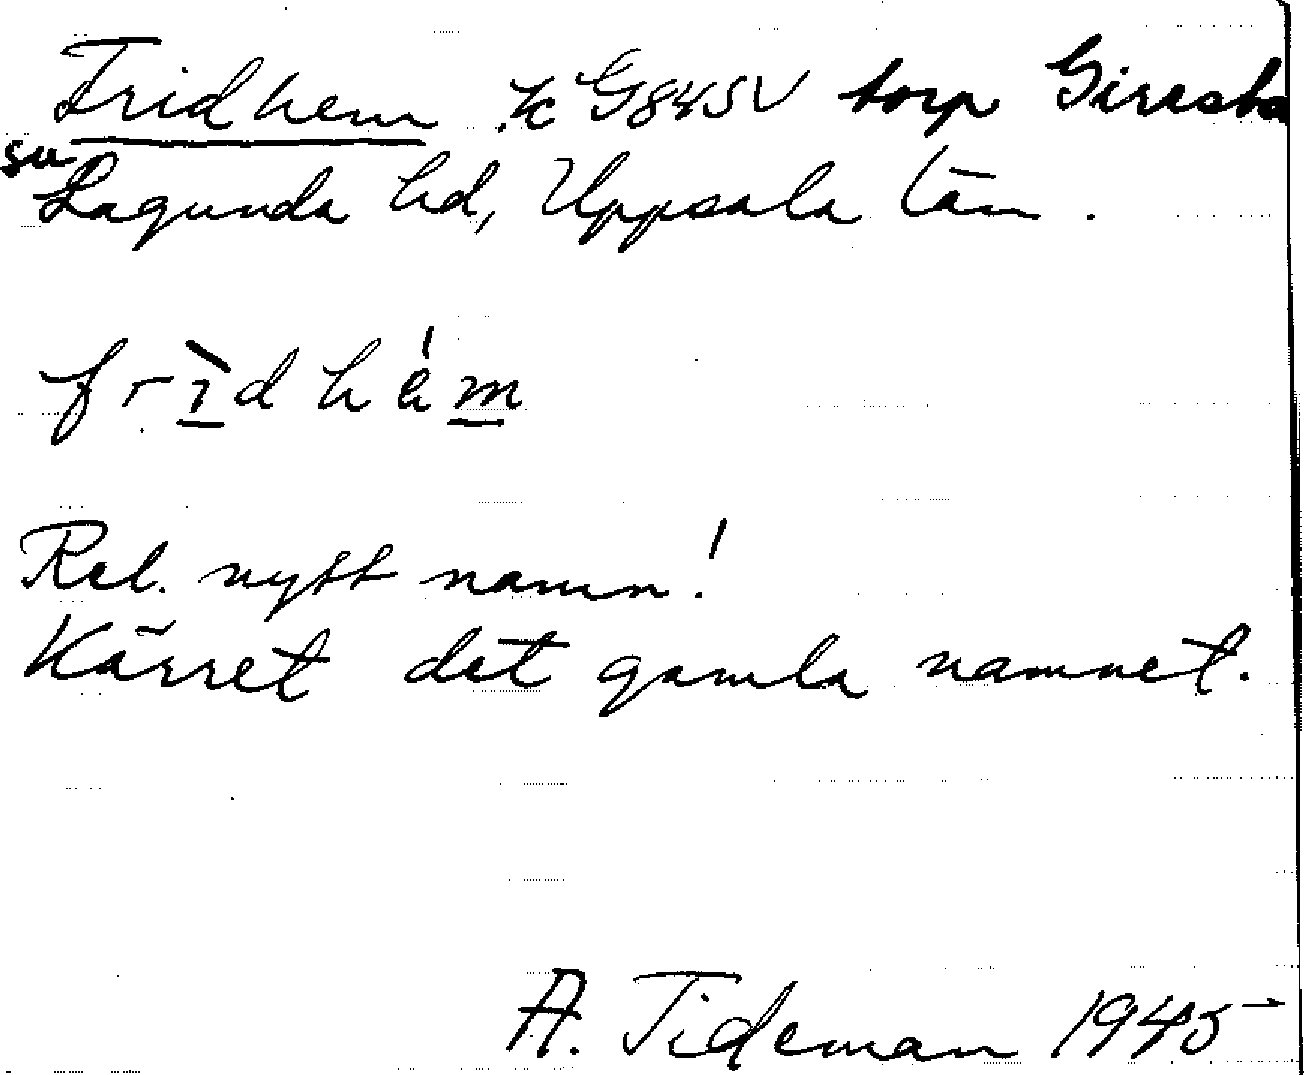 Fridhem .k G845V torp Giresta
sn
Lagunda hd, Uppsala län.
frìdhém
Rel. nytt namn!
Kärret det gamla namnet.
A. Tideman 1945